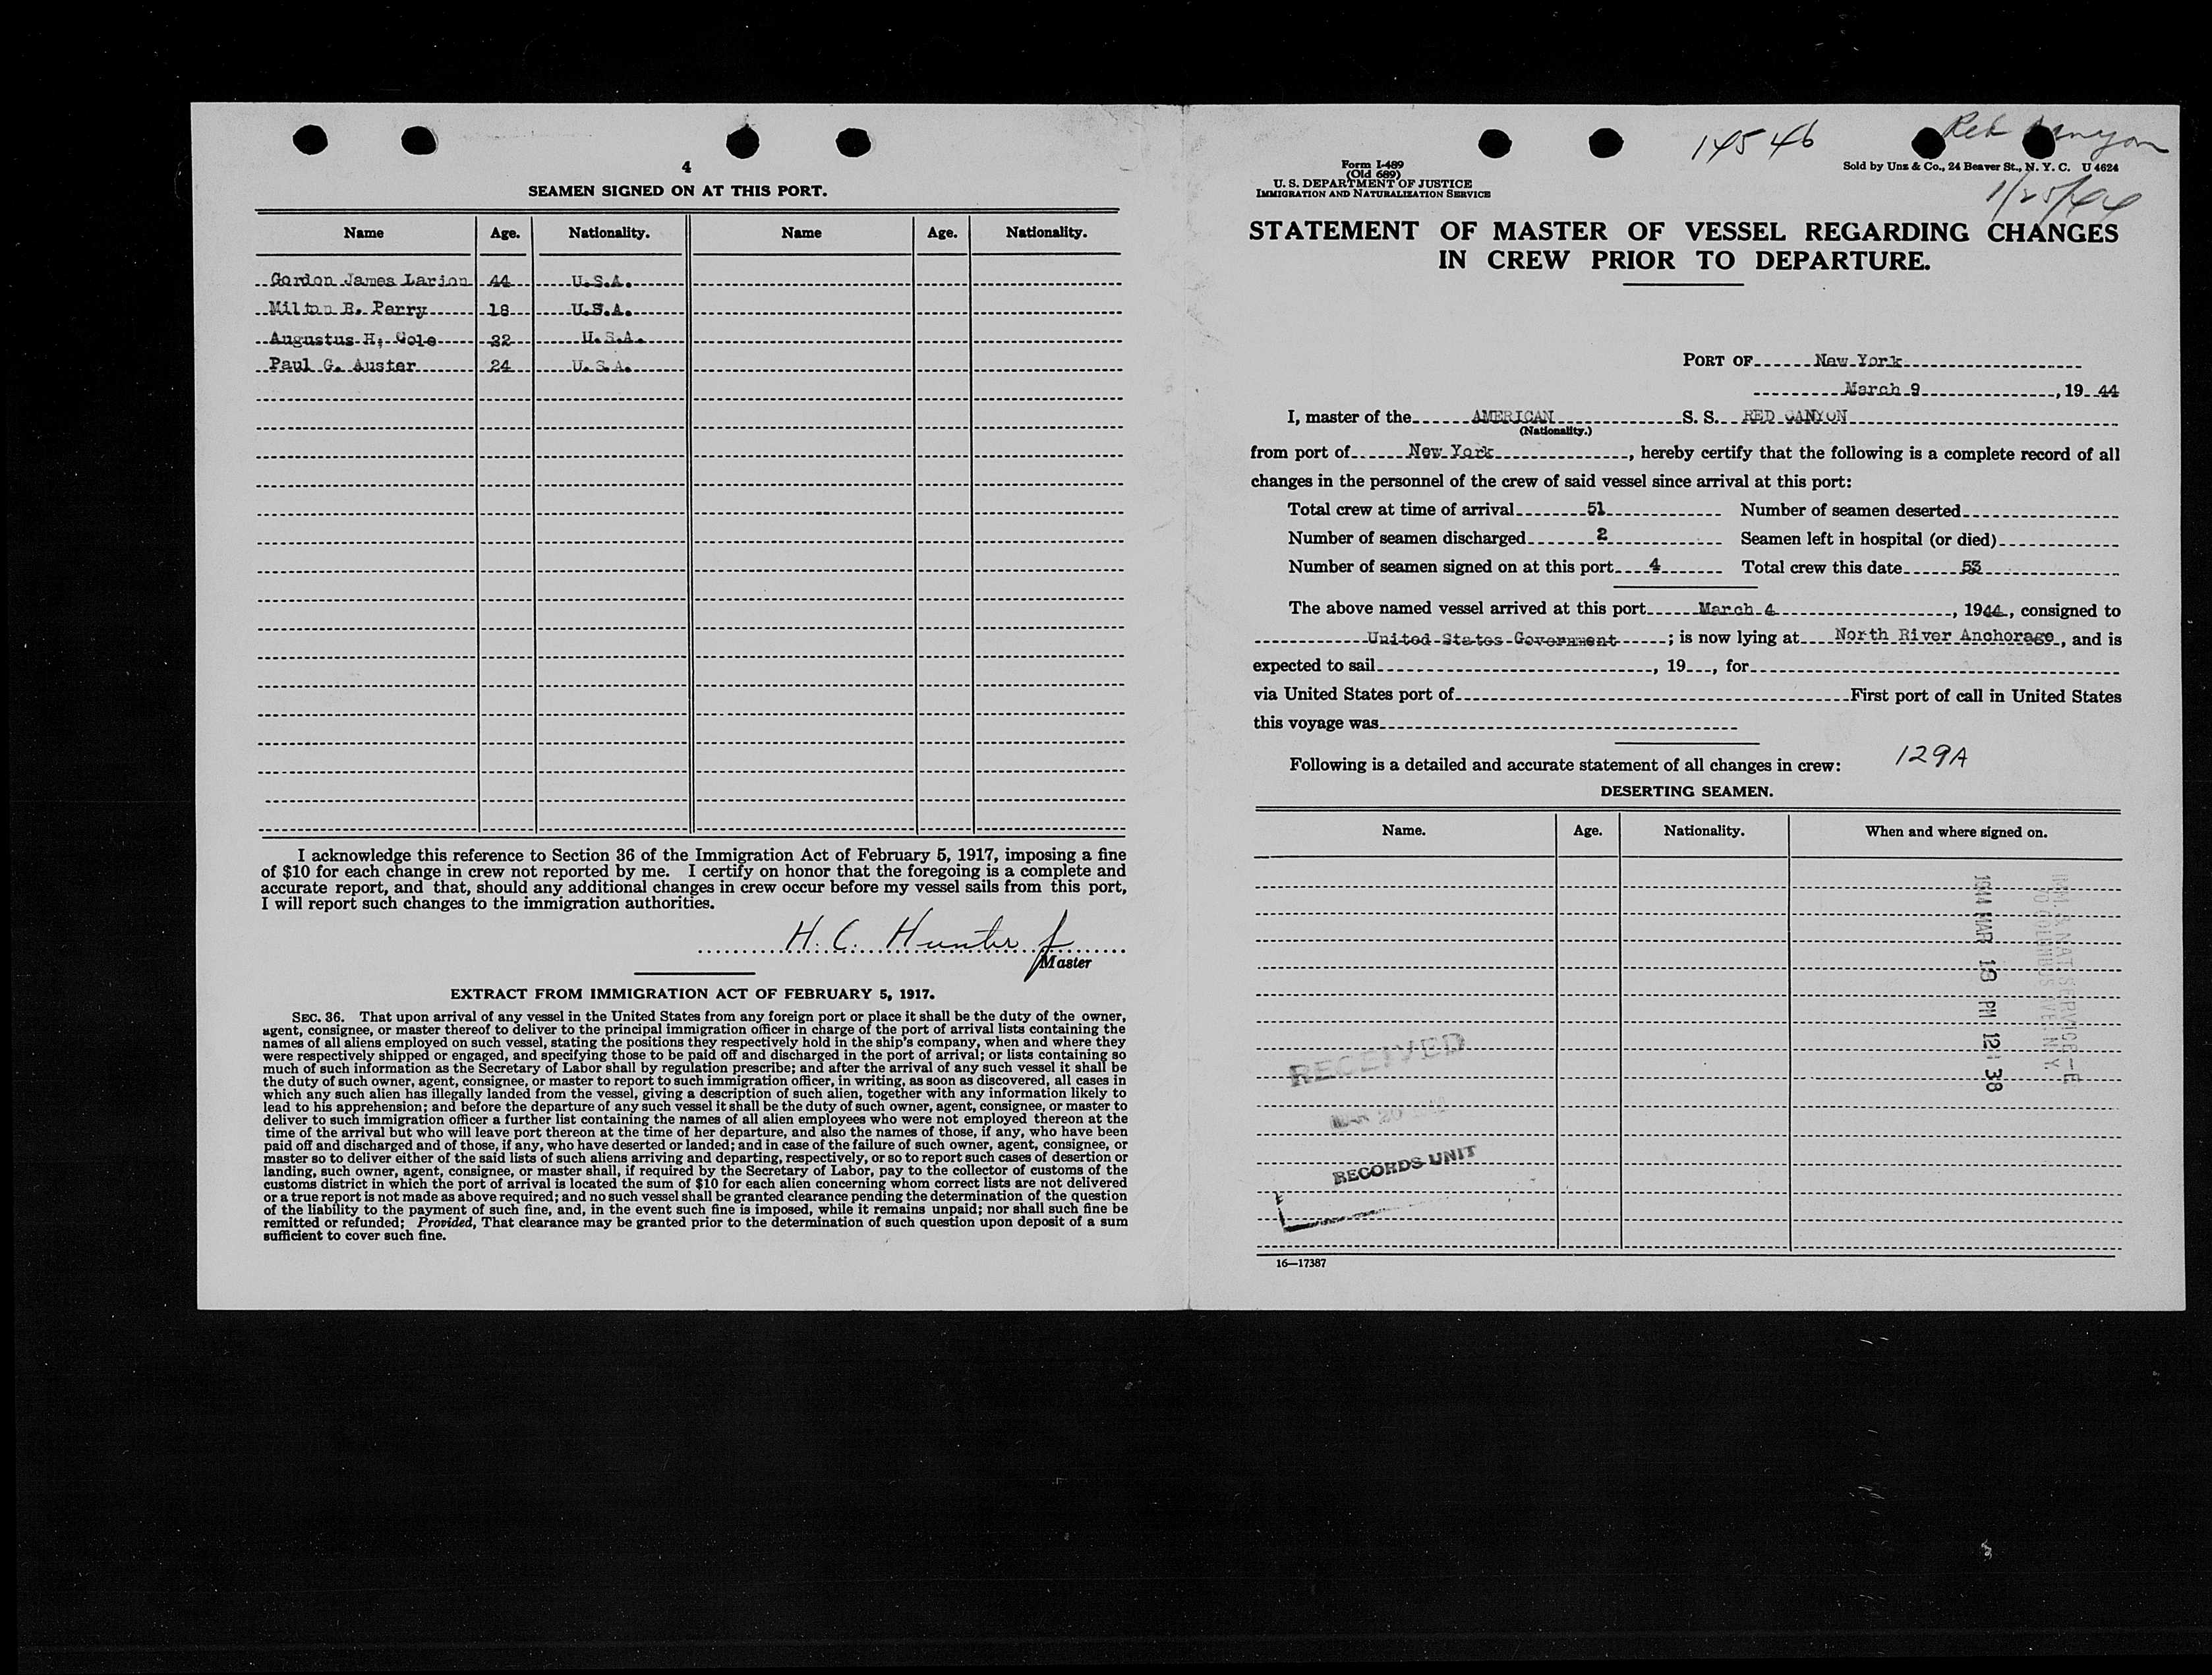 4
SEAMEN SIGNED ON AT THIS PORT.
Name Age. Nationality. Name Age. Nationality.
Gordon James Larion 44 U.S.A.
Milton R. Perry 18 U.S.A.
Augustus H. Cole 22 U.S.A.
Paul G. Auster 24 U.S.A.
I acknowledge this reference to Section 36 of the Immigration Act of February 5, 1917, imposing a fine
of $10 for each change in crew not reported by me. I certify on honor that the foregoing is a complete and
accurate report, and that, should any additional changes in crew occur before my vessel sails from this port,
I will report such changes to the immigration authorities.
H. C. Hunter Jr
Master
EXTRACT FROM IMMIGRATION ACT OF FEBRUARY 5, 1917.
SEC. 36. That upon arrival of any vessel in the United States from any foreign port or place it shall be the duty of the owner,
agent, consignee, or master thereof to deliver to the principal immigration officer in charge of the port of arrival lists containing the
names of all aliens employed on such vessel, stating the positions they respectively hold in the ship's company, when and where they
were respectively shipped or engaged, and specifying those to be paid off and discharged in the port of arrival; or lists containing so
much of such information as the Secretary of Labor shall by regulation prescribe; and after the arrival of any such vessel it shall be
the duty of such owner, agent, consignee, or master to report to such immigration officer, in writing, as soon as discovered, all cases in
which any such alien has illegally landed from the vessel, giving a description of such alien, together with any information likely to
lead to his apprehension; and before the departure of any such vessel it shall be the duty of such owner, agent, consignee, or master to
deliver to such immigration officer a further list containing the names of all alien employees who were not employed thereon at the
time of the arrival but who will leave port thereon at the time of her departure, and also the names of those, if any, who have been
paid off and discharged and of those, if any, who have deserted or landed; and in case of the failure of such owner, agent, consignee, or
master so to deliver either of the said lists of such aliens arriving and departing, respectively, or so to report such cases of desertion or
landing, such owner, agent, consignee, or master shall, if required by the Secretary of Labor, pay to the collector of customs of the
customs district in which the port of arrival is located the sum of $10 for each alien concerning whom correct lists are not delivered
or a true report is not made as above required; and no such vessel shall be granted clearance pending the determination of the question
of the liability to the payment of such fine, and, in the event such fine is imposed, while it remains unpaid; nor shall such fine be
remitted or refunded; Provided, That clearance may be granted prior to the determination of such question upon deposit of a sum
sufficient to cover such fine.
14546
Red Canyon
Form I-489
(Old 689)
U. S. DEPARTMENT OF JUSTICE
IMMIGRATION AND NATURALIZATION SERVICE
Sold by Unz & Co., 24 Beaver St., N. Y. C. U 4624
1/25/44
STATEMENT OF MASTER OF VESSEL REGARDING CHANGES
IN CREW PRIOR TO DEPARTURE.
PORT OF New York
March 9, 1944
I, master of the AMERICAN S. S. RED CANYON
(Nationality.)
from port of New York, hereby certify that the following is a complete record of all
changes in the personnel of the crew of said vessel since arrival at this port:
Total crew at time of arrival 51 Number of seamen deserted
Number of seamen discharged 2 Seamen left in hospital (or died)
Number of seamen signed on at this port 4 Total crew this date 53
The above named vessel arrived at this port March 4, 1944, consigned to
United States Government; is now lying at North River Anchorage, and is
expected to sail , 19 , for
via United States port of First port of call in United States
this voyage was
Following is a detailed and accurate statement of all changes in crew: 129A
DESERTING SEAMEN.
Name. Age. Nationality. When and where signed on.
1944 MAR 19 PM 12:38
RECEIVED
MAR 20
RECORDS UNIT
16—17387